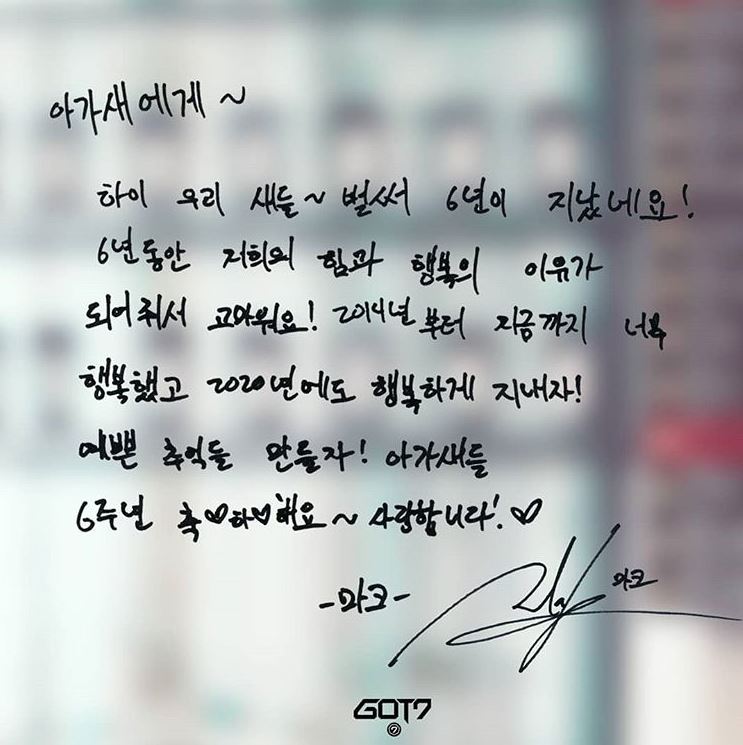 아가새에게~
하이 우리 새들~ 벌써 6년이 지났네요!
6년동안 저희의 힘과 행복의 이유가
되어줘서 고마워요! 2014년 부터 지금까지 너무
행복했고 2020년에도 행복하게 지내자!
예쁜 추억들 만들자! 아가새들
6주년 축♡하♡해요~ 사랑합니다!♡
-마크-
마크
GOT7